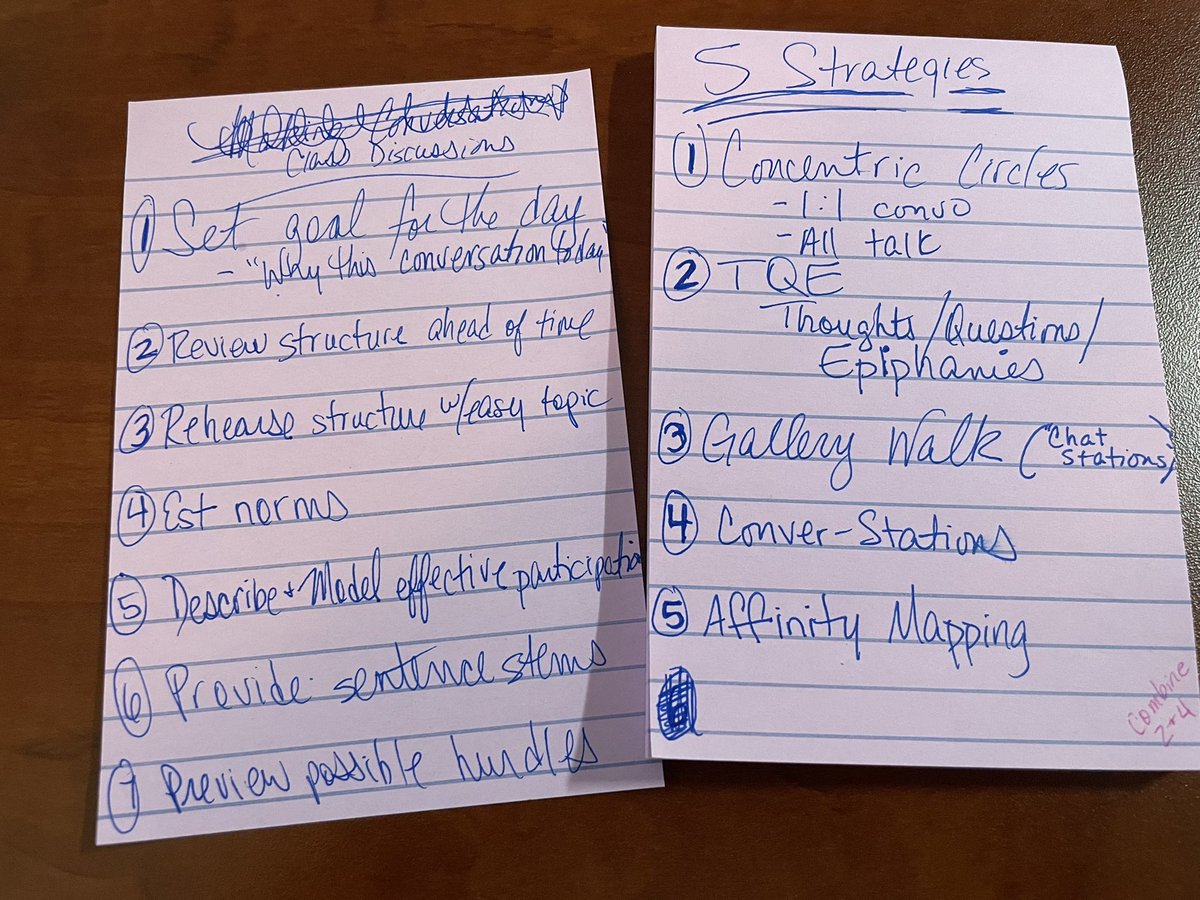 Class Discussions
① Set goal for the day
- "Why this conversation today"
② Review structure ahead of time
③ Rehearse structure w/easy topic
④ Est norms
⑤ Describe + Model effective participation
⑥ Provide sentence stems
⑦ Preview possible hurdles
5 Strategies
① Concentric Circles
- 1:1 convo
- All talk
② TQE
Thoughts/Questions/
Epiphanies
③ Gallery Walk ("Chat
Stations")
④ Conver-Stations
⑤ Affinity Mapping
Combine
2+4